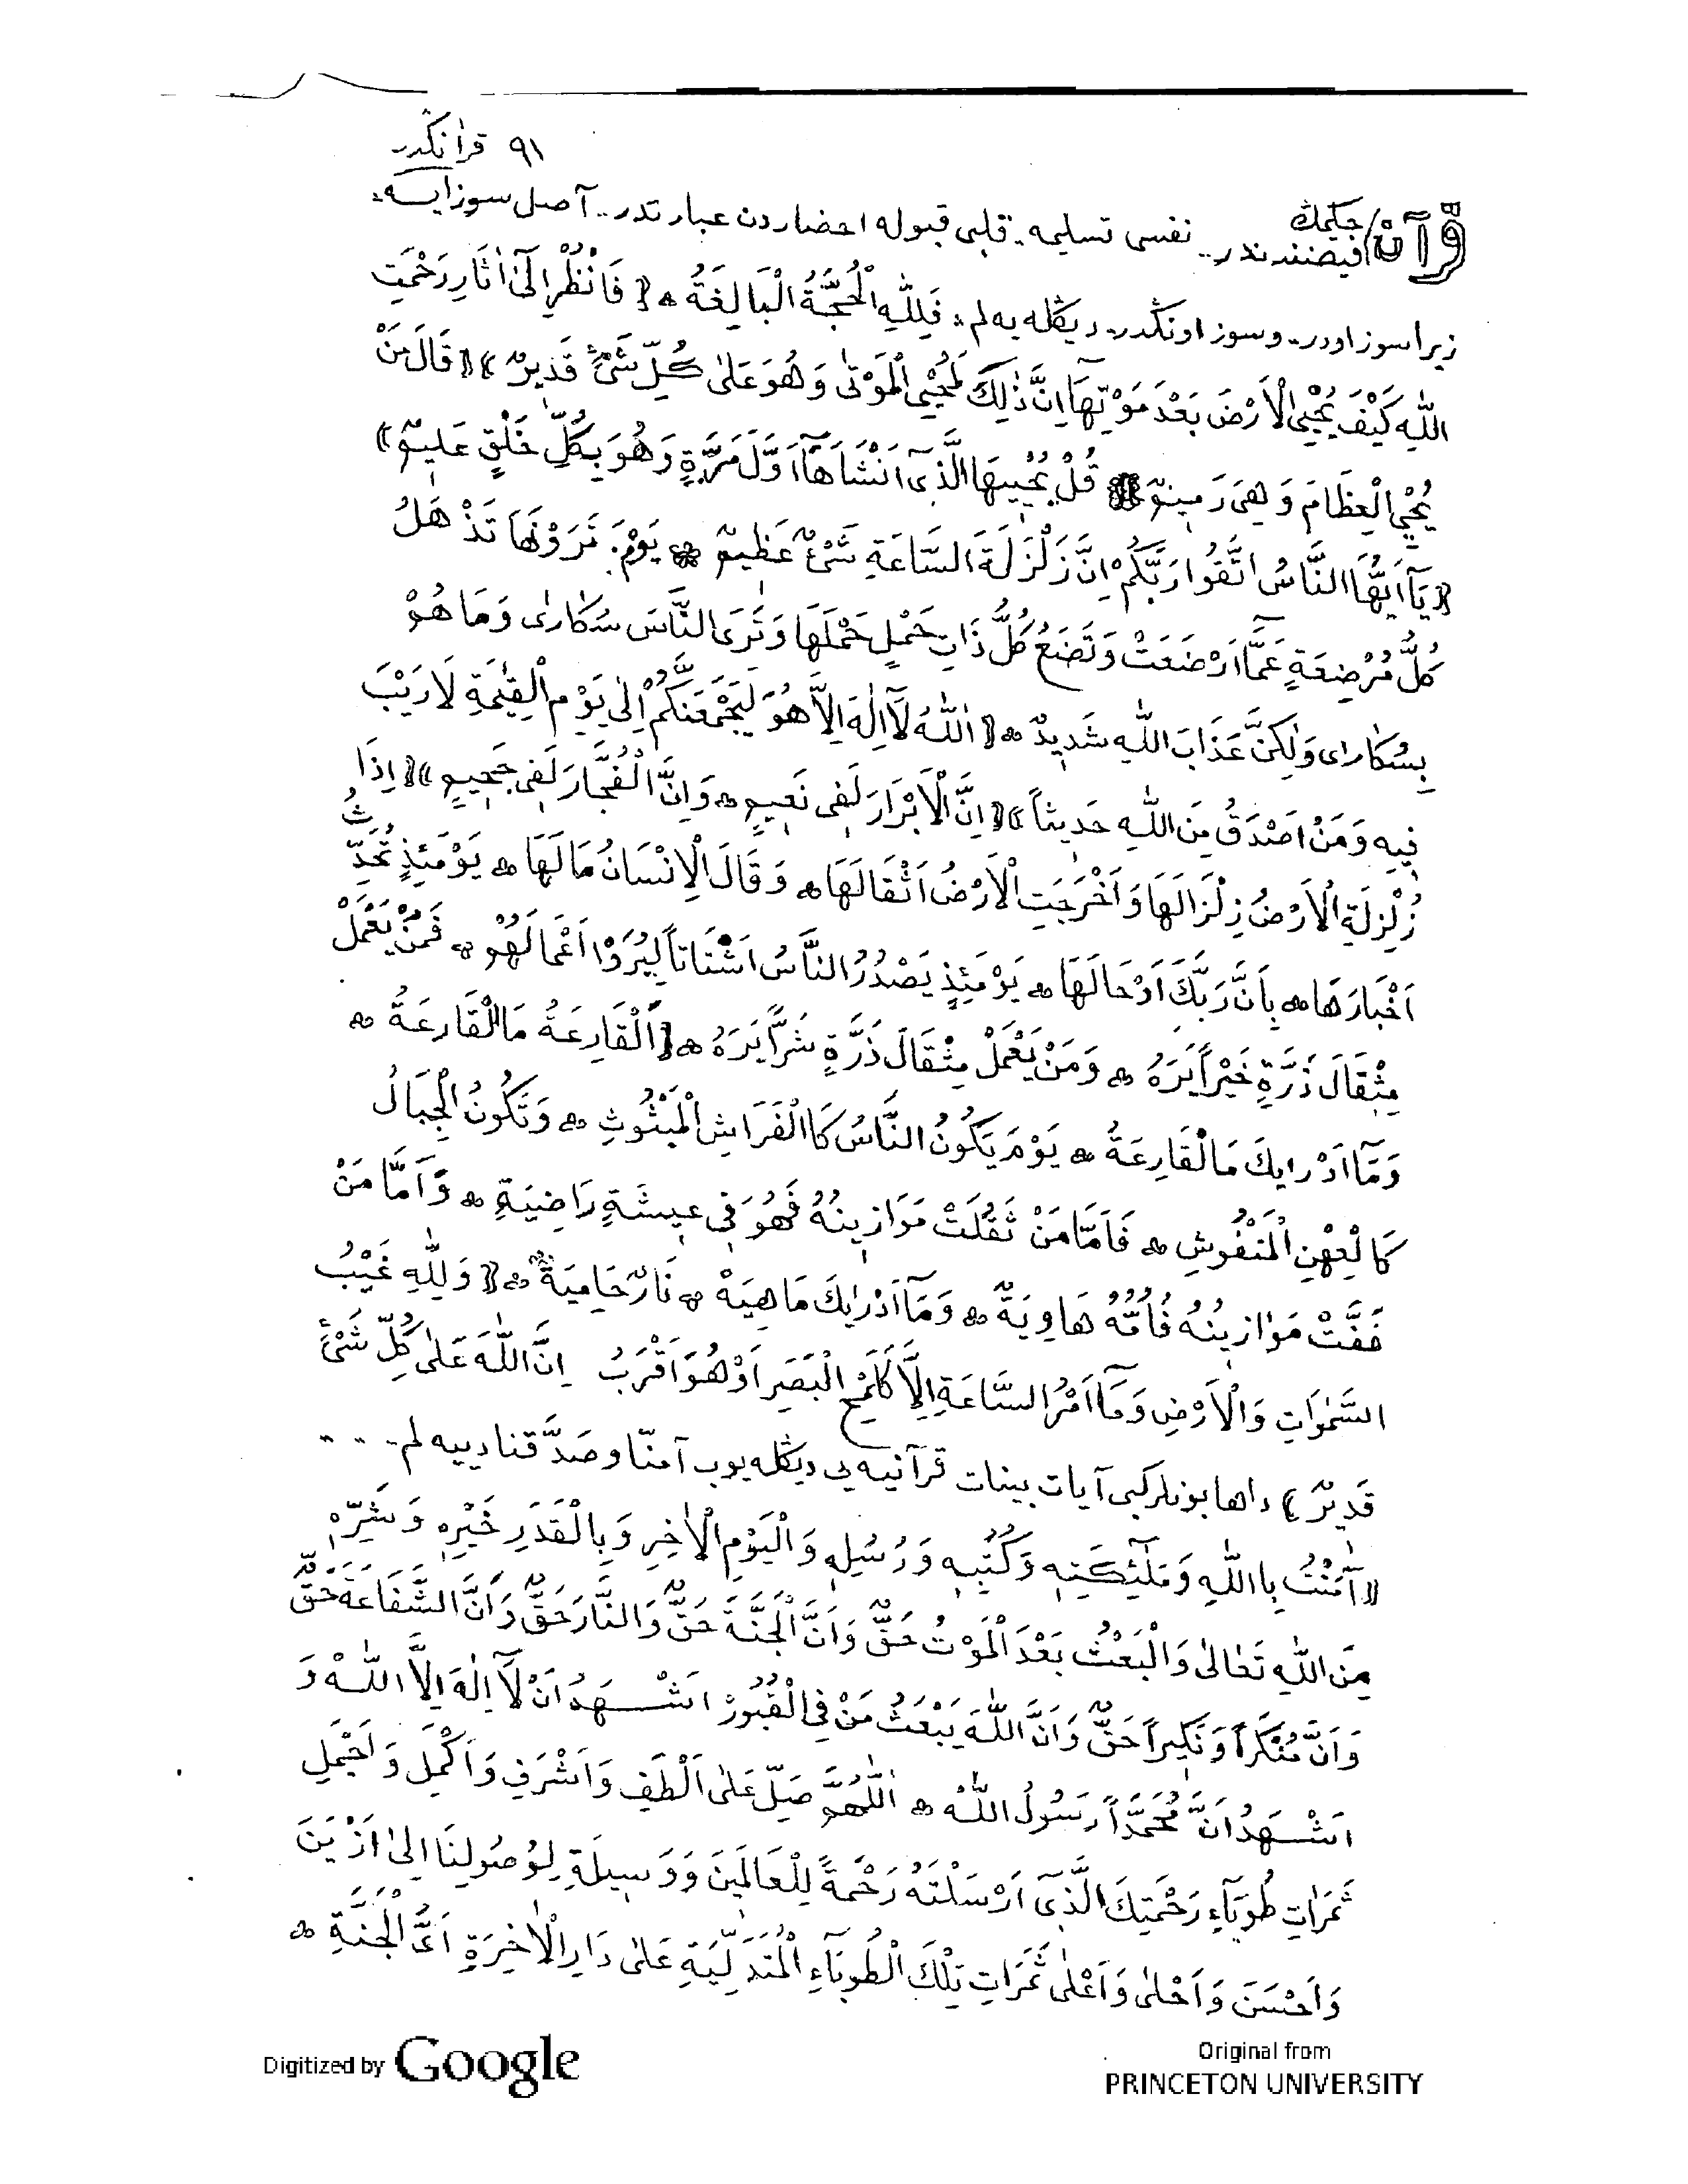 ٩١ قرآنكدر
قرآن حكيمك فيضندندر.. نفسى تسليمه. قلبى قبوله احضاردن عبارتدر.. آصل سوز ايسه:
زيرا سوز اودر. وسوز اونڭدر. ديڭله يه لم: فَلِلّٰهِ الْحُجَّةُ الْبَالِغَةُ ۞ ﴿ فَانْظُرْ اِلٰٓى اٰثَارِ رَحْمَتِ
اللّٰهِ كَيْفَ يُحْيِى الْاَرْضَ بَعْدَ مَوْتِهَا اِنَّ ذٰلِكَ لَمُحْيِى الْمَوْتٰى وَهُوَ عَلٰى كُلِّ شَىْءٍ قَدِيرٌ ﴾ ﴿ قَالَ مَنْ
يُحْيِى الْعِظَامَ وَهِىَ رَمِيمٌ ۞ قُلْ يُحْيِيهَا الَّذِٓى اَنْشَاَهَٓا اَوَّلَ مَرَّةٍ وَهُوَ بِكُلِّ خَلْقٍ عَلِيمٌ ﴾
﴿ يَٓا اَيُّهَا النَّاسُ اتَّقُوا رَبَّكُمْ اِنَّ زَلْزَلَةَ السَّاعَةِ شَىْءٌ عَظِيمٌ ۞ يَوْمَ تَرَوْنَهَا تَذْهَلُ
كُلُّ مُرْضِعَةٍ عَمَّٓا اَرْضَعَتْ وَتَضَعُ كُلُّ ذَاتِ حَمْلٍ حَمْلَهَا وَتَرَى النَّاسَ سُكَارٰى وَمَا هُمْ
بِسُكَارٰى وَلٰكِنَّ عَذَابَ اللّٰهِ شَدِيدٌ ۞ ﴿ اَللّٰهُ لَٓا اِلٰهَ اِلَّا هُوَ لَيَجْمَعَنَّكُمْ اِلٰى يَوْمِ الْقِيٰمَةِ لَا رَيْبَ
فِيهِ وَمَنْ اَصْدَقُ مِنَ اللّٰهِ حَدِيثاً ﴾ ﴿ اِنَّ الْاَبْرَارَ لَفِى نَعِيمٍ ۞ وَاِنَّ الْفُجَّارَ لَفِى جَحِيمٍ ﴾ ﴿ اِذَا
زُلْزِلَتِ الْاَرْضُ زِلْزَالَهَا وَاَخْرَجَتِ الْاَرْضُ اَثْقَالَهَا ۞ وَقَالَ الْاِنْسَانُ مَالَهَا ۞ يَوْمَئِذٍ تُحَدِّثُ
اَخْبَارَهَا ۞ بِاَنَّ رَبَّكَ اَوْحَا لَهَا ۞ يَوْمَئِذٍ يَصْدُرُ النَّاسُ اَشْتَاتاً لِيُرَوْا اَعْمَالَهُمْ ۞ فَمَنْ يَعْمَلْ
مِثْقَالَ ذَرَّةٍ خَيْراً يَرَهُ ۞ وَمَنْ يَعْمَلْ مِثْقَالَ ذَرَّةٍ شَرًّا يَرَهُ ۞ ﴿ اَلْقَارِعَةُ مَا الْقَارِعَةُ ۞
وَمَٓا اَدْرٰيكَ مَا الْقَارِعَةُ ۞ يَوْمَ يَكُونُ النَّاسُ كَاالْفَرَاشِ الْمَبْثُوثِ ۞ وَتَكُونُ الْجِبَالُ
كَالْعِهْنِ الْمَنْفُوشِ ۞ فَاَمَّا مَنْ ثَقُلَتْ مَوَازِينُهُ فَهُوَ فِى عِيشَةٍ رَاضِيَةٍ ۞ وَاَمَّا مَنْ
خَفَّتْ مَوَازِينُهُ فَاُمُّهُ هَاوِيَةٌ ۞ وَمَٓا اَدْرٰيكَ مَاهِيَهْ ۞ نَارٌ حَامِيَةٌ ۞ ﴿ وَلِلّٰهِ غَيْبُ
السَّمٰوَاتِ وَالْاَرْضِ وَمَٓا اَمْرُ السَّاعَةِ اِلَّا كَلَمْحِ الْبَصَرِ اَوْ هُوَ اَقْرَبُ اِنَّ اللّٰهَ عَلٰى كُلِّ شَىْءٍ
قَدِيرٌ ﴾ داها بونلركبى آيات بينات قرآنيه يى ديڭله يوب آمنّا وصدّقنا دييه لم. . . .
﴿ اٰمَنْتُ بِااللّٰهِ وَمَلٰٓئِكَتِهِ وَكُتُبِهِ وَرُسُلِهِ وَالْيَوْمِ الْاٰخِرِ وَبِالْقَدَرِ خَيْرِهِ وَشَرِّهِ
مِنَ اللّٰهِ تَعَالٰى وَالْبَعْثُ بَعْدَ الْمَوْتُ حَقٌّ وَاَنَّ الْجَنَّةَ حَقٌّ وَالنَّارَ حَقٌّ وَاَنَّ الشَّفَاعَةَ حَقٌّ
وَاَنَّ مُنْكَراً وَنَكِيراً حَقٌّ وَاَنَّ اللّٰهَ يَبْعَثُ مَنْ فِى الْقُبُورْ اَشْهَدُ اَنْ لَٓا اِلٰهَ اِلَّا اللّٰهْ وَ
اَشْهَدُ اَنَّ مُحَمَّداً رَسُولُ اللّٰهْ ۞ اَللّٰهُمَّ صَلِّ عَلٰى اَلْطَفِ وَاَشْرَفِ وَاَكْمَلِ وَاَجْمَلِ
ثَمَرَاتِ طُوبَٓاءِ رَحْمَتِكَ الَّذِٓى اَرْسَلْتَهُ رَحْمَةً لِلْعَالَمِينَ وَوَسِيلَةِ لِوُصُولِنَا اِلٰى اَزْيَنَ
وَاَحْسَنَ وَاَحْلٰى وَاَعْلٰى ثَمَرَاتِ تِلْكَ الْطُوبَٓاءِ الْمُتَدَلِّيَةِ عَلٰى دَارِ الْاٰخِرَةِ اَىِ الْجَنَّةِ ۞
Digitized by Google
Original from
PRINCETON UNIVERSITY